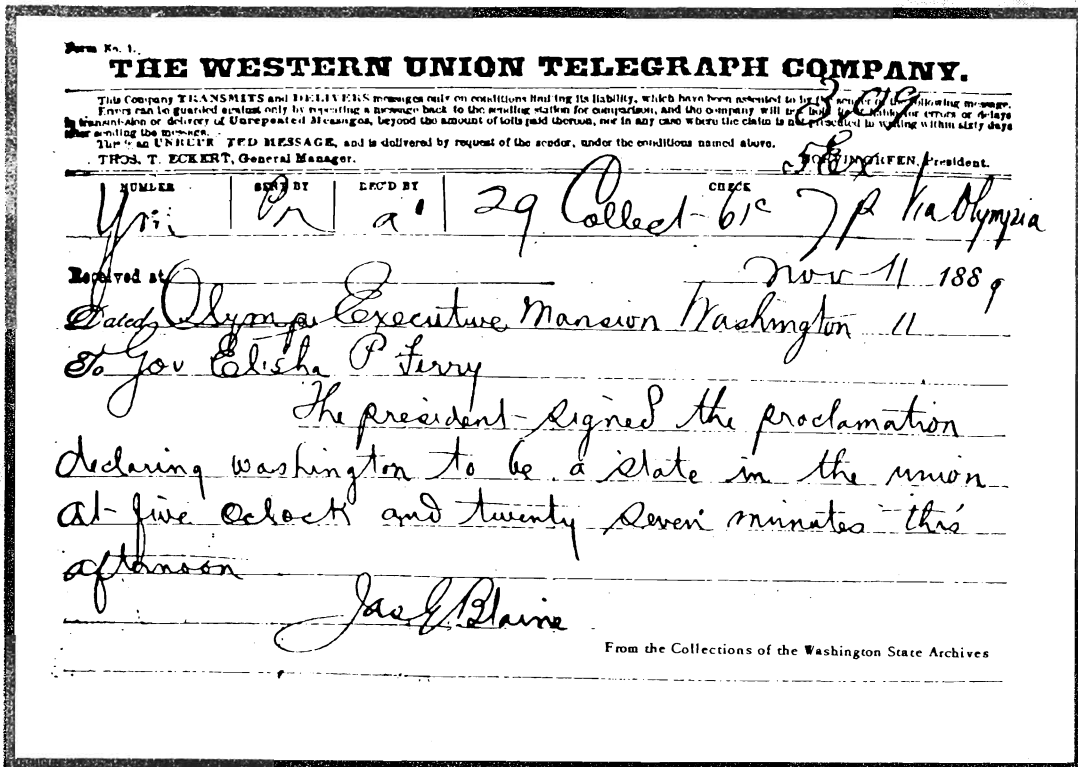 Form No. 1.
THE WESTERN UNION TELEGRAPH COMPANY.
This Company TRANSMITS and DELIVERS messages only on conditions limiting its liability, which have been assented to by the sender of the following message.
Errors can be guarded against only by repeating a message back to the sending station for comparison, and the company will not hold itself liable for errors or delays
in transmission or delivery of Unrepeated Messages, beyond the amount of tolls paid thereon, nor in any case where the claim is not presented in writing within sixty days
after sending the message.
This is an UNREPEATED MESSAGE, and is delivered by request of the sender, under the conditions named above.
THOS. T. ECKERT, General Manager. NORVIN GREEN, President.
NUMBER SENT BY REC'D BY CHECK
29 Collect 61c 7 P Via Olympia
Received at Nov 11 1889
Dated, Olympi Executive Mansion Washington 11
To Gov Elisha P Ferry
The president signed the proclamation
declaring washington to be a state in the union
at five oclock and twenty seven minates this
afternoon
Jas G Blaine
From the Collections of the Washington State Archives